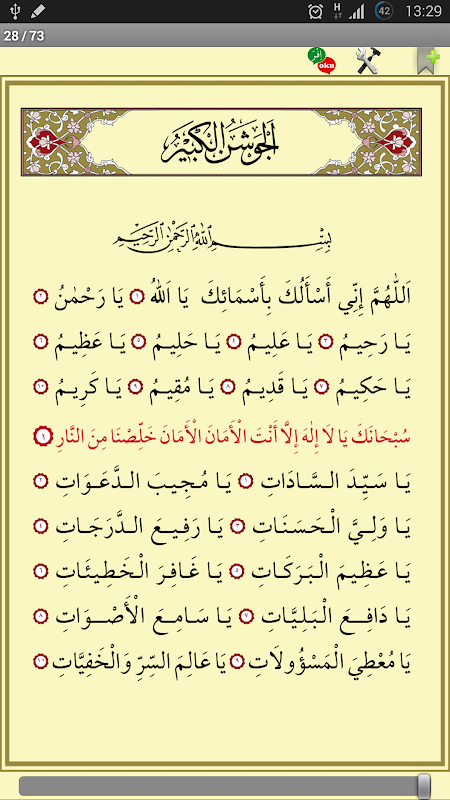 42 13:29
28 / 73
اقرأ
oku
اَلْجَوْشَنُ الْكَبِيرُ
بِسْمِ اللهِ الرَّحْمٰنِ الرَّحِيمِ
اَللّٰهُمَّ إِنِّي أَسْأَلُكَ بِأَسْمَائِكَ يَا اَللهُ ١ يَا رَحْمٰنُ ٢
يَا رَحِيمُ ٣ يَا عَلِيمُ ٤ يَا حَلِيمُ ٥ يَا عَظِيمُ ٦
يَا حَكِيمُ ٧ يَا قَدِيمُ ٨ يَا مُقِيمُ ٩ يَا كَرِيمُ ١٠
سُبْحَانَكَ يَا لَا إِلٰهَ إِلَّا أَنْتَ الْأَمَانَ الْأَمَانَ خَلِّصْنَا مِنَ النَّارِ ١
يَا سَيِّدَ السَّادَاتِ ١ يَا مُجِيبَ الدَّعَوَاتِ ٢
يَا وَلِيَّ الْحَسَنَاتِ ٣ يَا رَفِيعَ الدَّرَجَاتِ ٤
يَا عَظِيمَ الْبَرَكَاتِ ٥ يَا غَافِرَ الْخَطِيئَاتِ ٦
يَا دَافِعَ الْبَلِيَّاتِ ٧ يَا سَامِعَ الْأَصْوَاتِ ٨
يَا مُعْطِيَ الْمَسْؤُولَاتِ ٩ يَا عَالِمَ السِّرِّ وَالْخَفِيَّاتِ ١٠